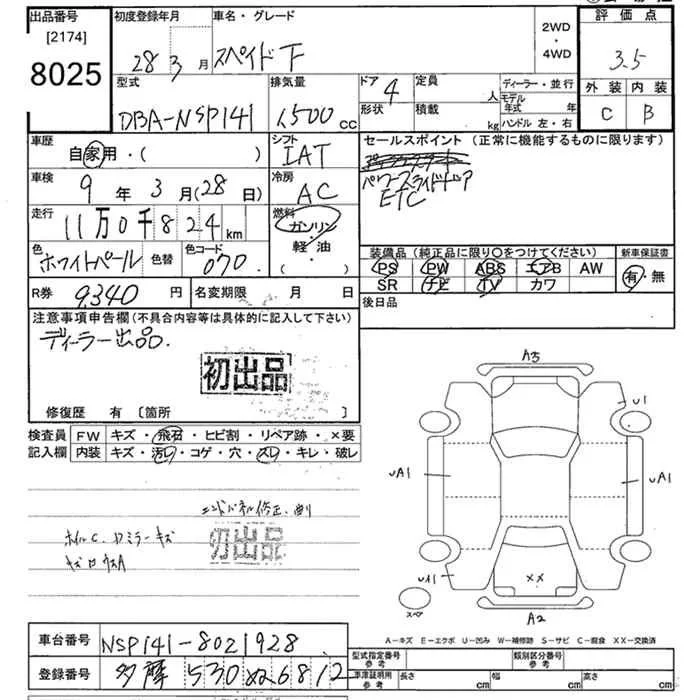 出品番号 初度登録年月 車名・グレード 2WD・4WD 評価点
[2174]
8025 28 3月 スペイド F 3.5
型式 排気量 ドア 4 定員 人 ディーラー・並行 外装 内装
DBA-NSP141 1,500 cc 形状 積載 kg モデル年式 年 ハンドル 左・右 C B
車歴 自家用・( ) シフト IAT セールスポイント (正常に機能するものに限ります)
車検 9年 3月(28日) 冷房 AC パワースライドドア
ETC
走行 11万0千824km 燃料 ガソリン・軽油・( )
色 ホワイトパール 色替 色コード 070.
装備品 (純正品に限り〇をつけてください) 新車保証書
PS PW ABS エアB AW 有・無
SR ナビ TV カワ
R券 9,340円 名変期限 月 日 後日品
注意事項申告欄(不具合内容等は具体的に記入して下さい)
ディーラー出品.
初出品
修復歴 有 [箇所 ]
検査員記入欄 FW キズ・飛石・ヒビ割・リペア跡・×要
内装 キズ・汚れ・コゲ・穴・スレ・キレ・破レ
エンドパネル修正、凹
ホイルC. Dミラーキズ
初出品
A3
U1
UA1
UA1
U1
XX
スペア
A2
A-キズ E-エクボ U-凹み W-補修跡 S-サビ C-腐食 XX-交換済
車台番号 NSP141-8021928
登録番号 多摩 530 ぬ 6812
型式指定番号参考 類別区分番号参考
車庫証明用参考 長さ cm 幅 cm 高さ cm